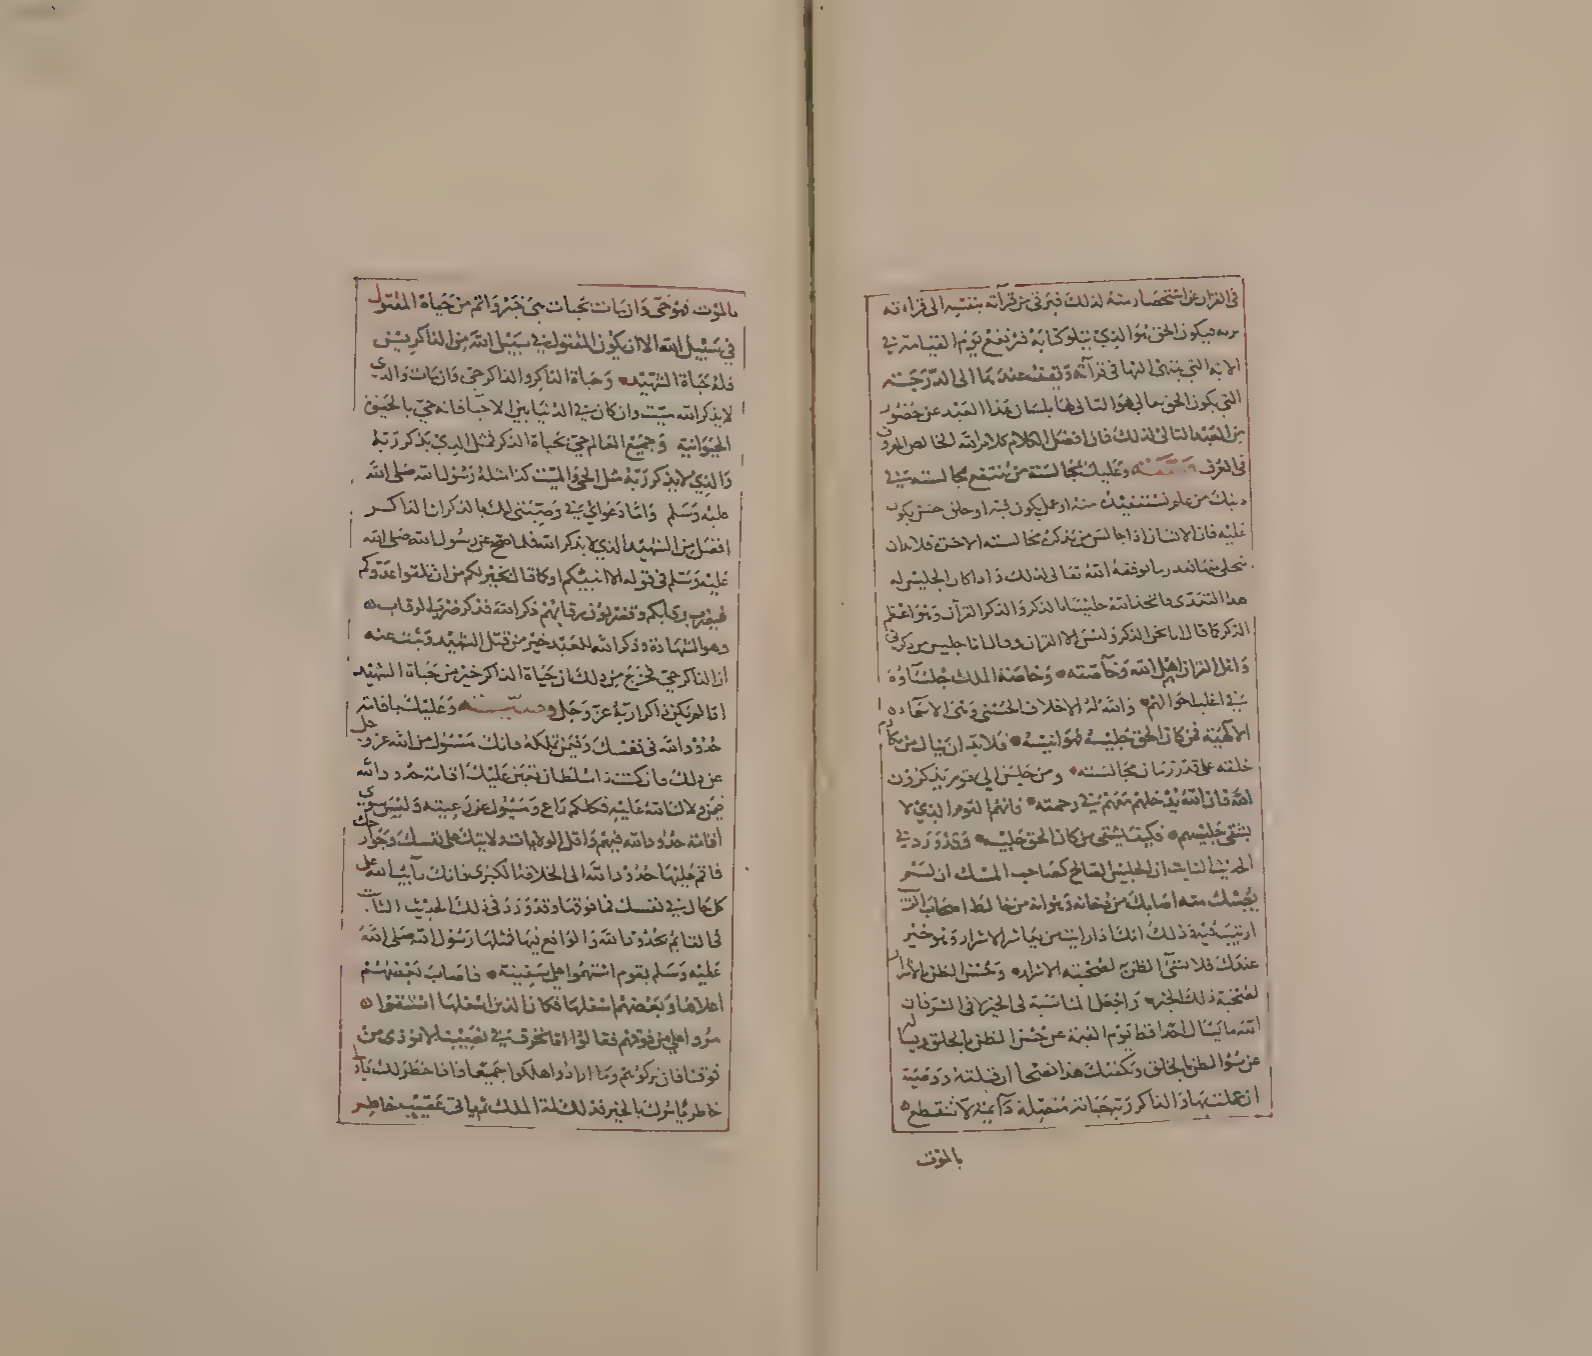 في القرآن عن استحضار منه لذلك فيرقى من قرآته بنفسه الى قراءته
بربه فيكون الحق هو الذي يتلو كتابه فيرتفع يوم القيامة في
الاية التي ينتهى اليها في قرآته ويقف عندها الى الدرجة
التي يكون الحق تعالى هو التالى لها بلسان هذا العبد عن حضور
من العبد التالى لذلك فان افضل الكلام كلام الله الخاص المعروف
في العرف وصية وعليك بمجالسة من تنتفع بمجالسته في
دينك من علم تستفيده منه او عمل يكون فيه او خلق حسن يكون
عليه فان الانسان اذا جالس من تذكره مجالسته الاخرة فلا بد ان
يتحلى منها بقدر ما يوفقه الله تعالى لذلك واذا كان الجليس له
هذا التعدى فاتخذ الله جليسا بالذكر والذكر القرآن وهو اعظم
الذكر كما قال انا نحن الذكر وليس الا القران وقال انا جليس من ذكرني
واهل القران اهل الله وخاصته وخاصة الملك جلساؤه
في اغلب احوالهم والله له الاخلاق الحسنى وهى الاسماء
الالهية فمن كان الحق جليسه فهو انيسه فلا بد ان ينال من مكارم
خلقه على قدر زمان مجالسته ومن جلس الى قوم يذكرون
الله فان الله يدخله معهم في رحمته فانهم القوم الذي لا
يشقى جليسهم فكيف يشقى من كان الحق جليسه وقد ورد في
الحديث الثابت ان الجليس الصالح كصاحب المسك ان لم
يصبك منه اصابك من ريحه وهو انه من خالط اصحاب الريب
ارتيب فيه وذلك انك اذا رايت من يعاشر الاشرار وهو خير
عندك فلا تسئ الظن به لصحبته الاشرار وحسن الظن بالاشرار
لصحبة ذلك الخير واجعل المناسبة في الخير لا في الشر فان
الله ما يسال احدا قط يوم القيمة عن حسن الظن بالخلق ويساله
عن سوء الظن بالخلق ويكفيك هذا نصحا ان قبلته ووصية
ان عملت بها والذاكر ربه حياته متصلة دائمة لا تنقطع
بالموت
بالموت فهو حى وان مات بحياة هى خير واتم من حياة المقتول
في سبيل الله الا ان يكون المقتول في سبيل الله من الذاكرين
فله حياة الشهيد وحياة الذاكر والذاكر حى وان مات والذى
لا يذكر الله ميت وان كان في الدنيا بين الاحيا فانه حي بالحيوة
الحيوانية وجميع العالم حي بحياة الذكر فمثل الذي يذكر ربه
والذي لا يذكر ربه مثل الحي والميت كذا مثله رسول الله صلى الله
عليه وسلم واما دعواي في وصيتى لك بالذكر ان الذاكر
افضل من الشهيد الذي لا يذكر الله فلما صح عن رسول الله صلى الله
عليه وسلم في قوله الا انبيكم او كما قال بخير لكم من ان تلقوا عدوكم
فيضرب رقابكم وتضربون رقابهم ذكر الله فذكر ضرب الرقاب
وهو الشهادة وذكر الله للعبد خير من قتل الشهيد وثبت عنه
ان الذاكر حي فخرج من ذلك ان حياة الذاكر خير من حياة الشهيد
اذا لم يكن ذاكرا ربه عز وجل وصية وعليك باقامة
حدود الله في نفسك وفيمن تملكه فانك مسئول من الله عز وجل
عن ذلك فان كنت ذا سلطان تعين عليك اقامة حدود الله
فيمن ولاك الله عليه فكلكم راع ومسئول عن رعيته وليس سوى
اقامة حدود الله فيهم واقل الولايات ولايتك على نفسك وجوارحك
فاقم عليها حدود الله الى الخلافة الكبرى فانك نائب الله على
كل حال في نفسك فما فوقها وقد ورد في ذلك الحديث الثابت
في القائم بحدود الله والواقع فيها فمثلها رسول الله صلى الله
عليه وسلم بقوم استهموا على سفينة فاصاب بعضهم
اعلاها وبعضهم اسفلها فكان الذين اسفلها اذا استقوا
مروا على من فوقهم فقالوا انا نخرق في نصيبنا لا نوذى من
فوقنا فان تركوهم وما ارادوا هلكوا جميعا فاذا خطر لك يا اخى
خاطر يامرك بالخير فذلك لمة الملك ثم ياتى عقيبه خاطر